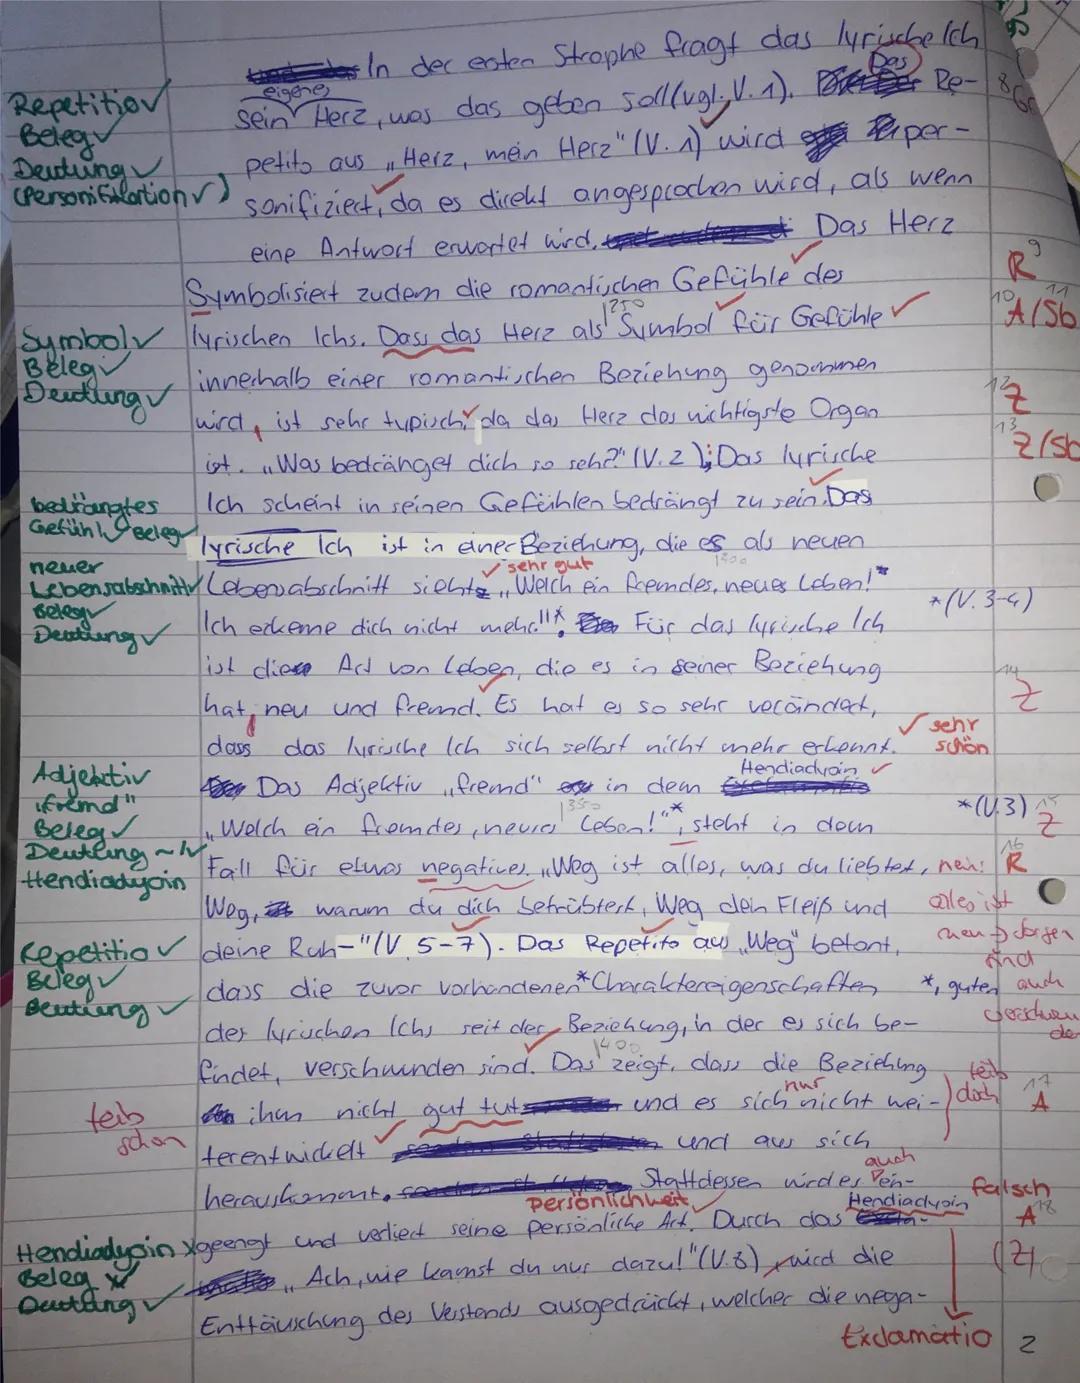 In der ersten Strophe fragt das lyrische Ich
Repetitio✓
eigenes
Das
8
Gr
sein Herz, was das geben soll (vgl. V. 1). Re-
Beleg✓
petito aus „Herz, mein Herz" (V. 1) wird per-
Deutung✓
(Personifikation✓)
sonifiziert, da es direkt angesprochen wird, als wenn
eine Antwort erwartet wird. Das Herz
9
R
Symbolisiert zudem die romantischen Gefühle des
10
11
A/Sb
1250
Symbol✓
lyrischen Ichs. Dass das Herz als Symbol für Gefühle
Beleg✓
Deutung✓
innerhalb einer romantischen Beziehung genommen
12
Z
wird, ist sehr typisch, da das Herz das wichtigste Organ
13
Z/Sb
ist. „Was bedränget dich so sehr?" (V. 2); Das lyrische
bedrängtes
Ich scheint in seinen Gefühlen bedrängt zu sein. Das
Gefühl✓ Beleg✓
lyrische Ich ist in einer Beziehung, die es als neuen
neuer
sehr gut
1300
Lebensabschnitt✓
Lebensabschnitt sieht: „Welch ein fremdes, neues Leben!*
*(V. 3-4)
Beleg✓
Deutung✓
Ich erkenne dich nicht mehr."* Für das lyrische Ich
ist diese Art von Leben, die es in seiner Beziehung
14
Z
hat, neu und fremd. Es hat es so sehr verändert,
sehr
schön
dass das lyrische Ich sich selbst nicht mehr erkennt.
Adjektiv
Hendiadyoin ✓
„fremd"
Das Adjektiv „fremd" in dem
1350
*(V.3)
15
Z
Beleg✓
„Welch ein fremdes, neues Leben!"*, steht in dem
Deutung~/✓
16
R
Hendiadyoin
Fall für etwas negatives. „Weg ist alles, was du liebtest,
nein:
alles ist
Weg, warum du dich betrübtest, Weg dein Fleiß und
neu → Sorgen
sind
Repetitio✓
deine Ruh-" (V. 5-7). Das Repetito aus „Weg" betont,
Beleg✓
Deutung✓
dass die zuvor vorhandenen* Charaktereigenschaften
*, guten
auch
des lyrischen Ichs seit der Beziehung, in der es sich be-
1400
findet, verschwunden sind. Das zeigt, dass die Beziehung
teils
schon
nur
teils
doch
17
A
ihm nicht gut tut und es sich nicht wei-
terentwickelt und aus sich
auch
herauskommt. Stattdessen wird es ein-
falsch
18
A
Persönlichkeit
Hendiadyoin
Hendiadyoin x
geengt und verliert seine persönliche Art. Durch das
(Z)
Beleg
„Ach, wie kamst du nur dazu!" (V.8) wird die
Deutung✓
Enttäuschung des Verstands ausgedrückt, welcher die nega-
Exclamatio
2